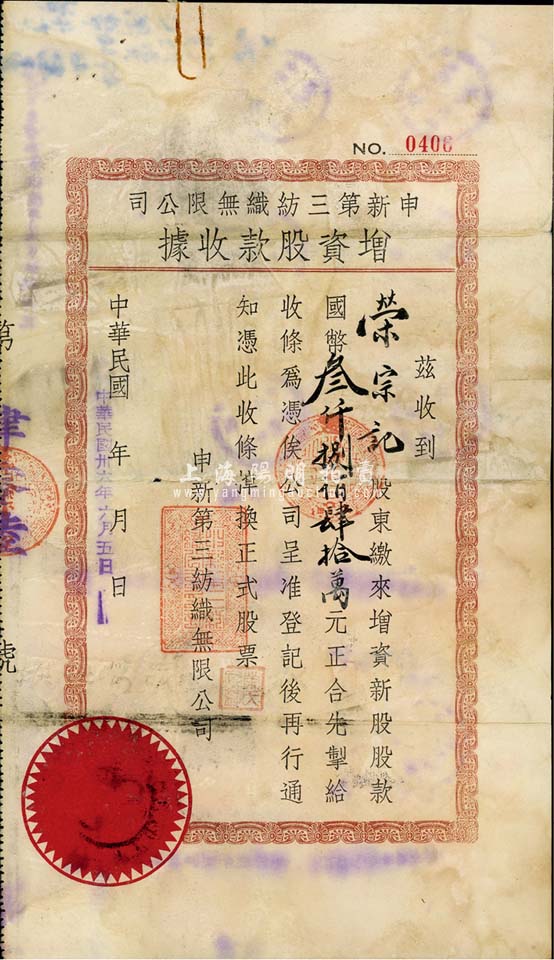 NO. 0406
申新第三紡織無限公司
增資股款收據
茲收到
榮宗記股東繳來增資新股股款
國幣叁仟捌佰肆拾萬元正合先掣給
收條爲憑俟公司呈准登記後再行通
知憑此收條換正式股票
申新第三紡織無限公司
中華民國 年 月 日
中華民國卅六年六月五日
第
號
上海陽明拍賣
www.yangmingauction.com